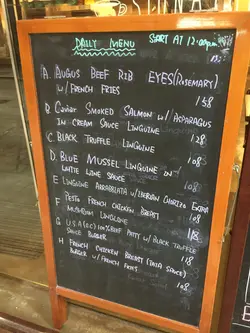 DAILY MENU START AT 12:00pm
A AUGUS BEEF RIB EYES (ROSEMARY)
W/ FRENCH FRIES
158
B CAVIAR SMOKED SALMON W/ ASPARAGUS
IN CREAM SAUCE LINGUINE 128
C BLACK TRUFFLE LINGUINE
108
D BLUE MUSSEL LINGUINE IN
WHITE WINE SAUCE 108
E LINGUINE ARRABBIATA W/ IBERIAN CHORIZO
108
F PESTO FRENCH CHICKEN BREAST
MUSHROOM LINGUINE 108
G U.S.A 100% BEEF PATTY W/ BLACK TRUFFLE
SAUCE BURGER 118
H FRENCH CHICKEN BREAST SAUCE)
BURGER W/ FRENCH FRIES 108